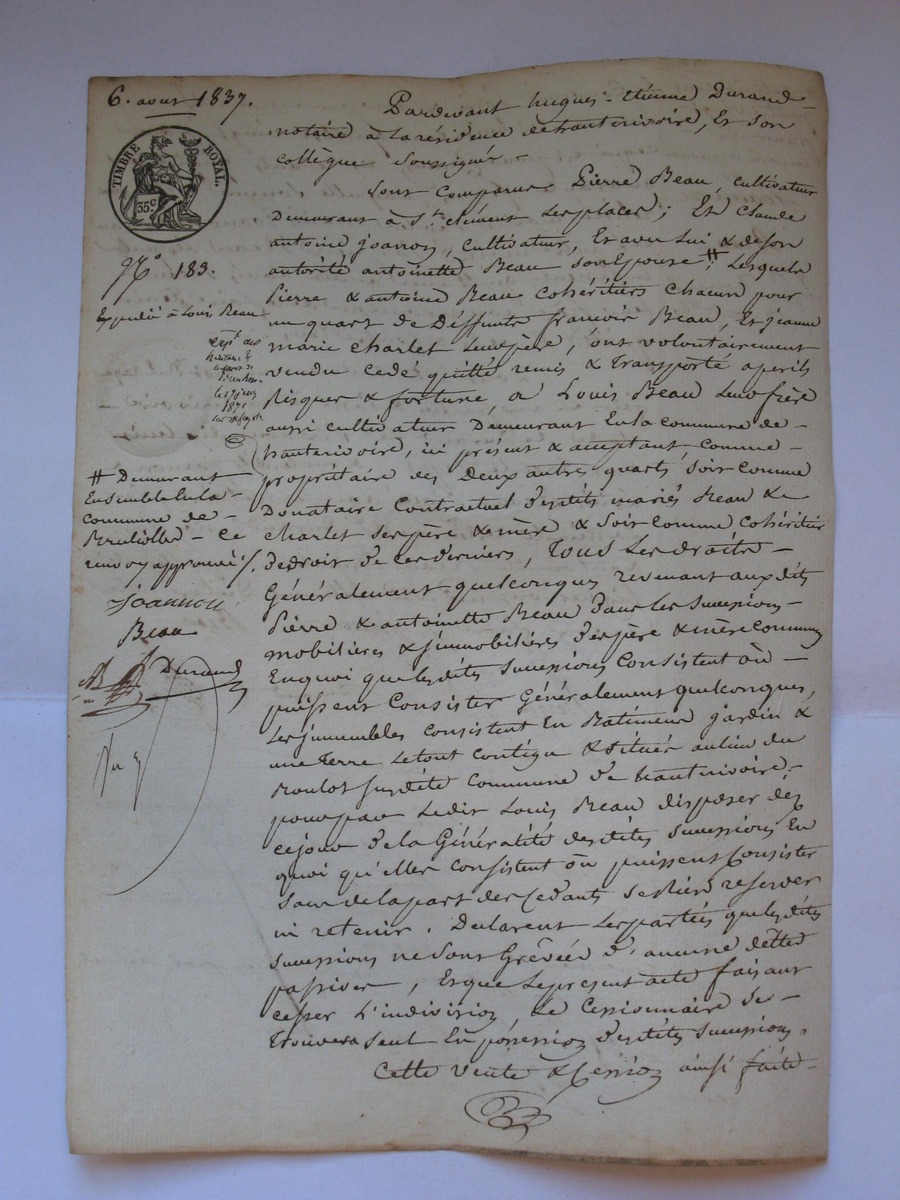 6. aout 1837.
TIMBRE ROYAL.
35c
No 183.
Expédié à Louis Beau
1871
# Demeurant
Ensemble En la
Commune de
Brulliolles - ce
renvoy approuvé /.
Joannon
Beau
Durand
Pardevant hugues - Etienne Durand
notaire à la résidence de hauterivoire, Et son
collègue soussignés -
Sont Comparus Pierre Beau, cultivateur
Demeurant à St. clément Les places; Et Claude
antoine joannon, cultivateur, Et avec Lui & de son
autorité antoinette Beau son Epouse #; Lesquels
Pierre & antoine Beau cohéritiers chacun pour
un quart de Déffunts françois Beau, Et jeanne
marie charlet Leur père, ont volontairement
vendu cedé quitté remis & transporté à perils
Risques & fortune, a Louis Beau Leur frère
aussi cultivateur Demeurant En la commune de -
hauterivoire, ici présent & acceptant comme -
propriétaire des Deux autres quarts, soit comme
Donataire Contractuel desdits mariés Beau &
charlet ses père & mère & soit comme cohéritier
de droit de ces derniers, Tous Les droits -
Généralement quelconques revenant auxdits
Pierre & antoinette Beau dans Les successions -
mobilières & immobilières des père & mère communs
En quoi que lesdites successions Consistent ou -
puissent Consister Généralement quelconques,
Les immeubles consistent En Batiments jardin &
une Terre Le tout contigu & situés au lieu du
Boulot susdite Commune de hauterivoire,
pour par Ledit Louis Beau disposer dez
ce jour de la Généralité desdites successions En
quoi qu'elles consistent ou puissent Consister
sans de la part des Cedants se rien reserver
ni retenir. Declarent Les parties que lesdites
successions ne sont Grêvées d'aucune dètte
passives, Et que Le présent acte faisant
cesser L'indivision, Le Cessionnaire se -
trouvera seul En possession desdites successions.
Cette vente & Cession ainsi faite -